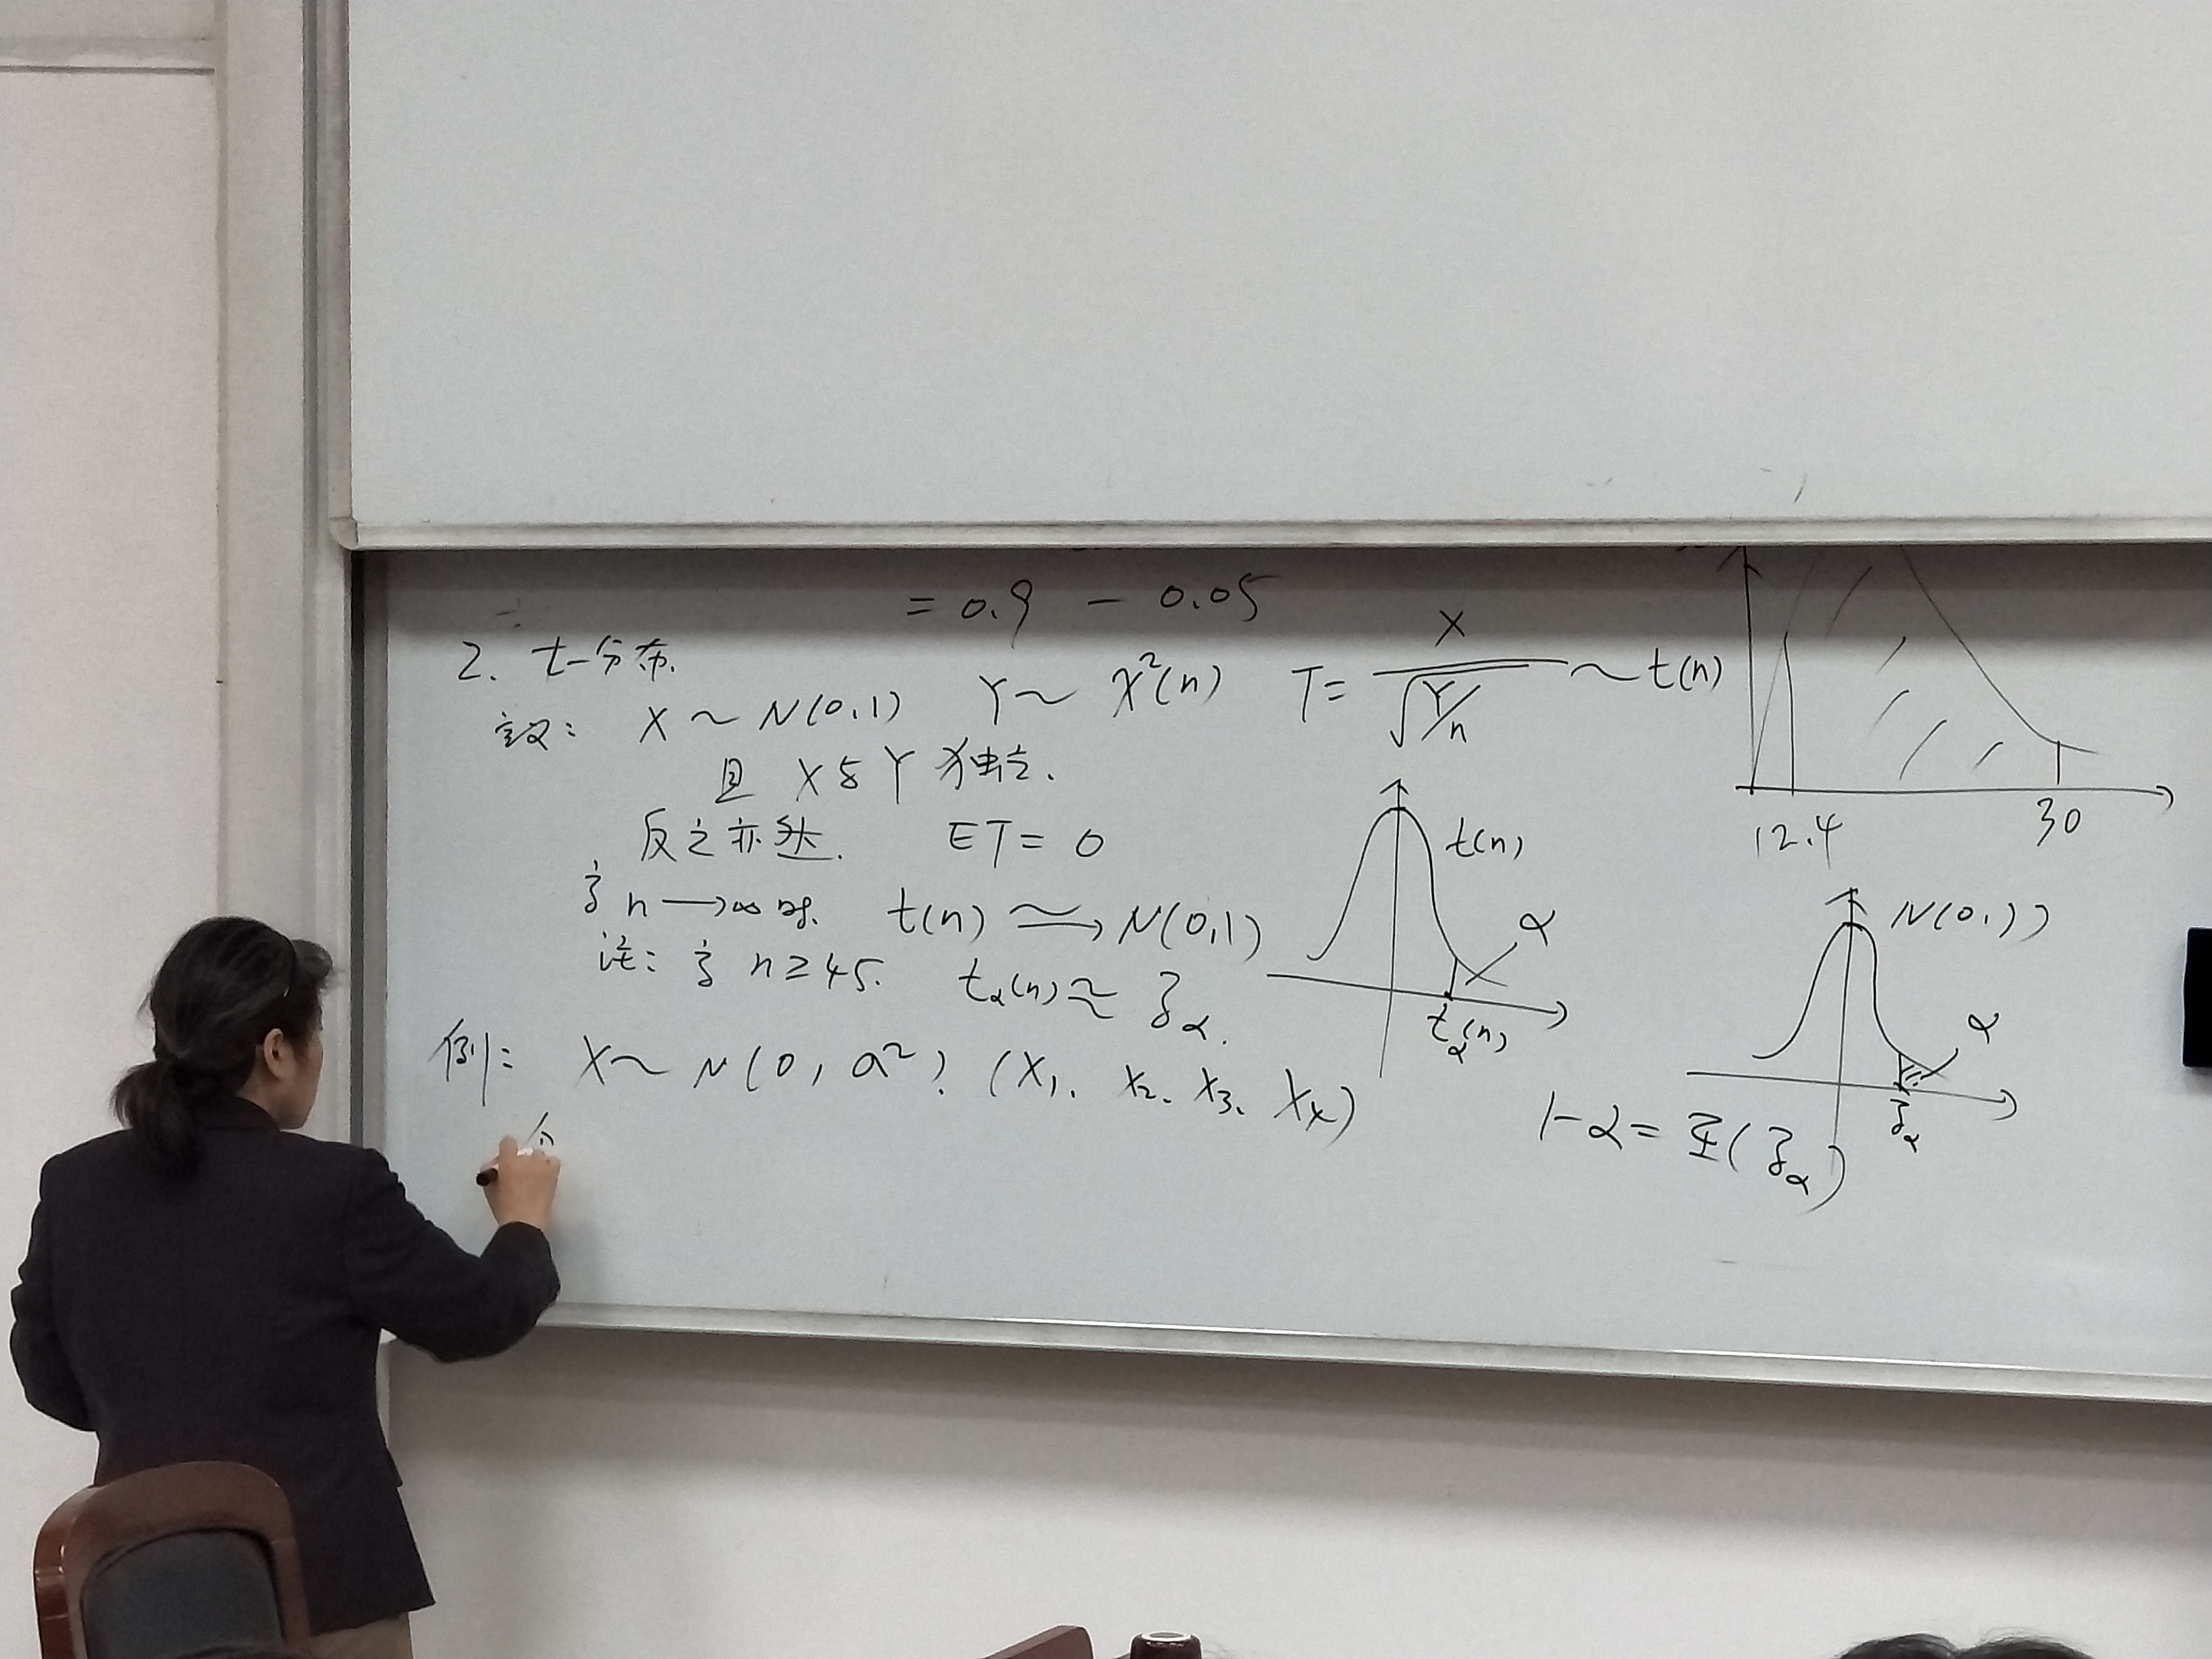 = 0.9 - 0.05
2. t-分布.
设: X ~ N(0,1) Y ~ χ²(n) T = X / √(Y/n) ~ t(n)
且 X与Y 独立.
反之亦然. ET = 0
当 n → ∞ 时. t(n) ~⟶ N(0,1)
注: 当 n ≥ 45. tα(n) ≈ ʒα.
例: X ~ N(0, a²) (X₁, X₂, X₃, X₄)
t(n)
α
tα(n)
12.4 30
N(0,1)
α
ʒα
1-α = Φ(ʒα)